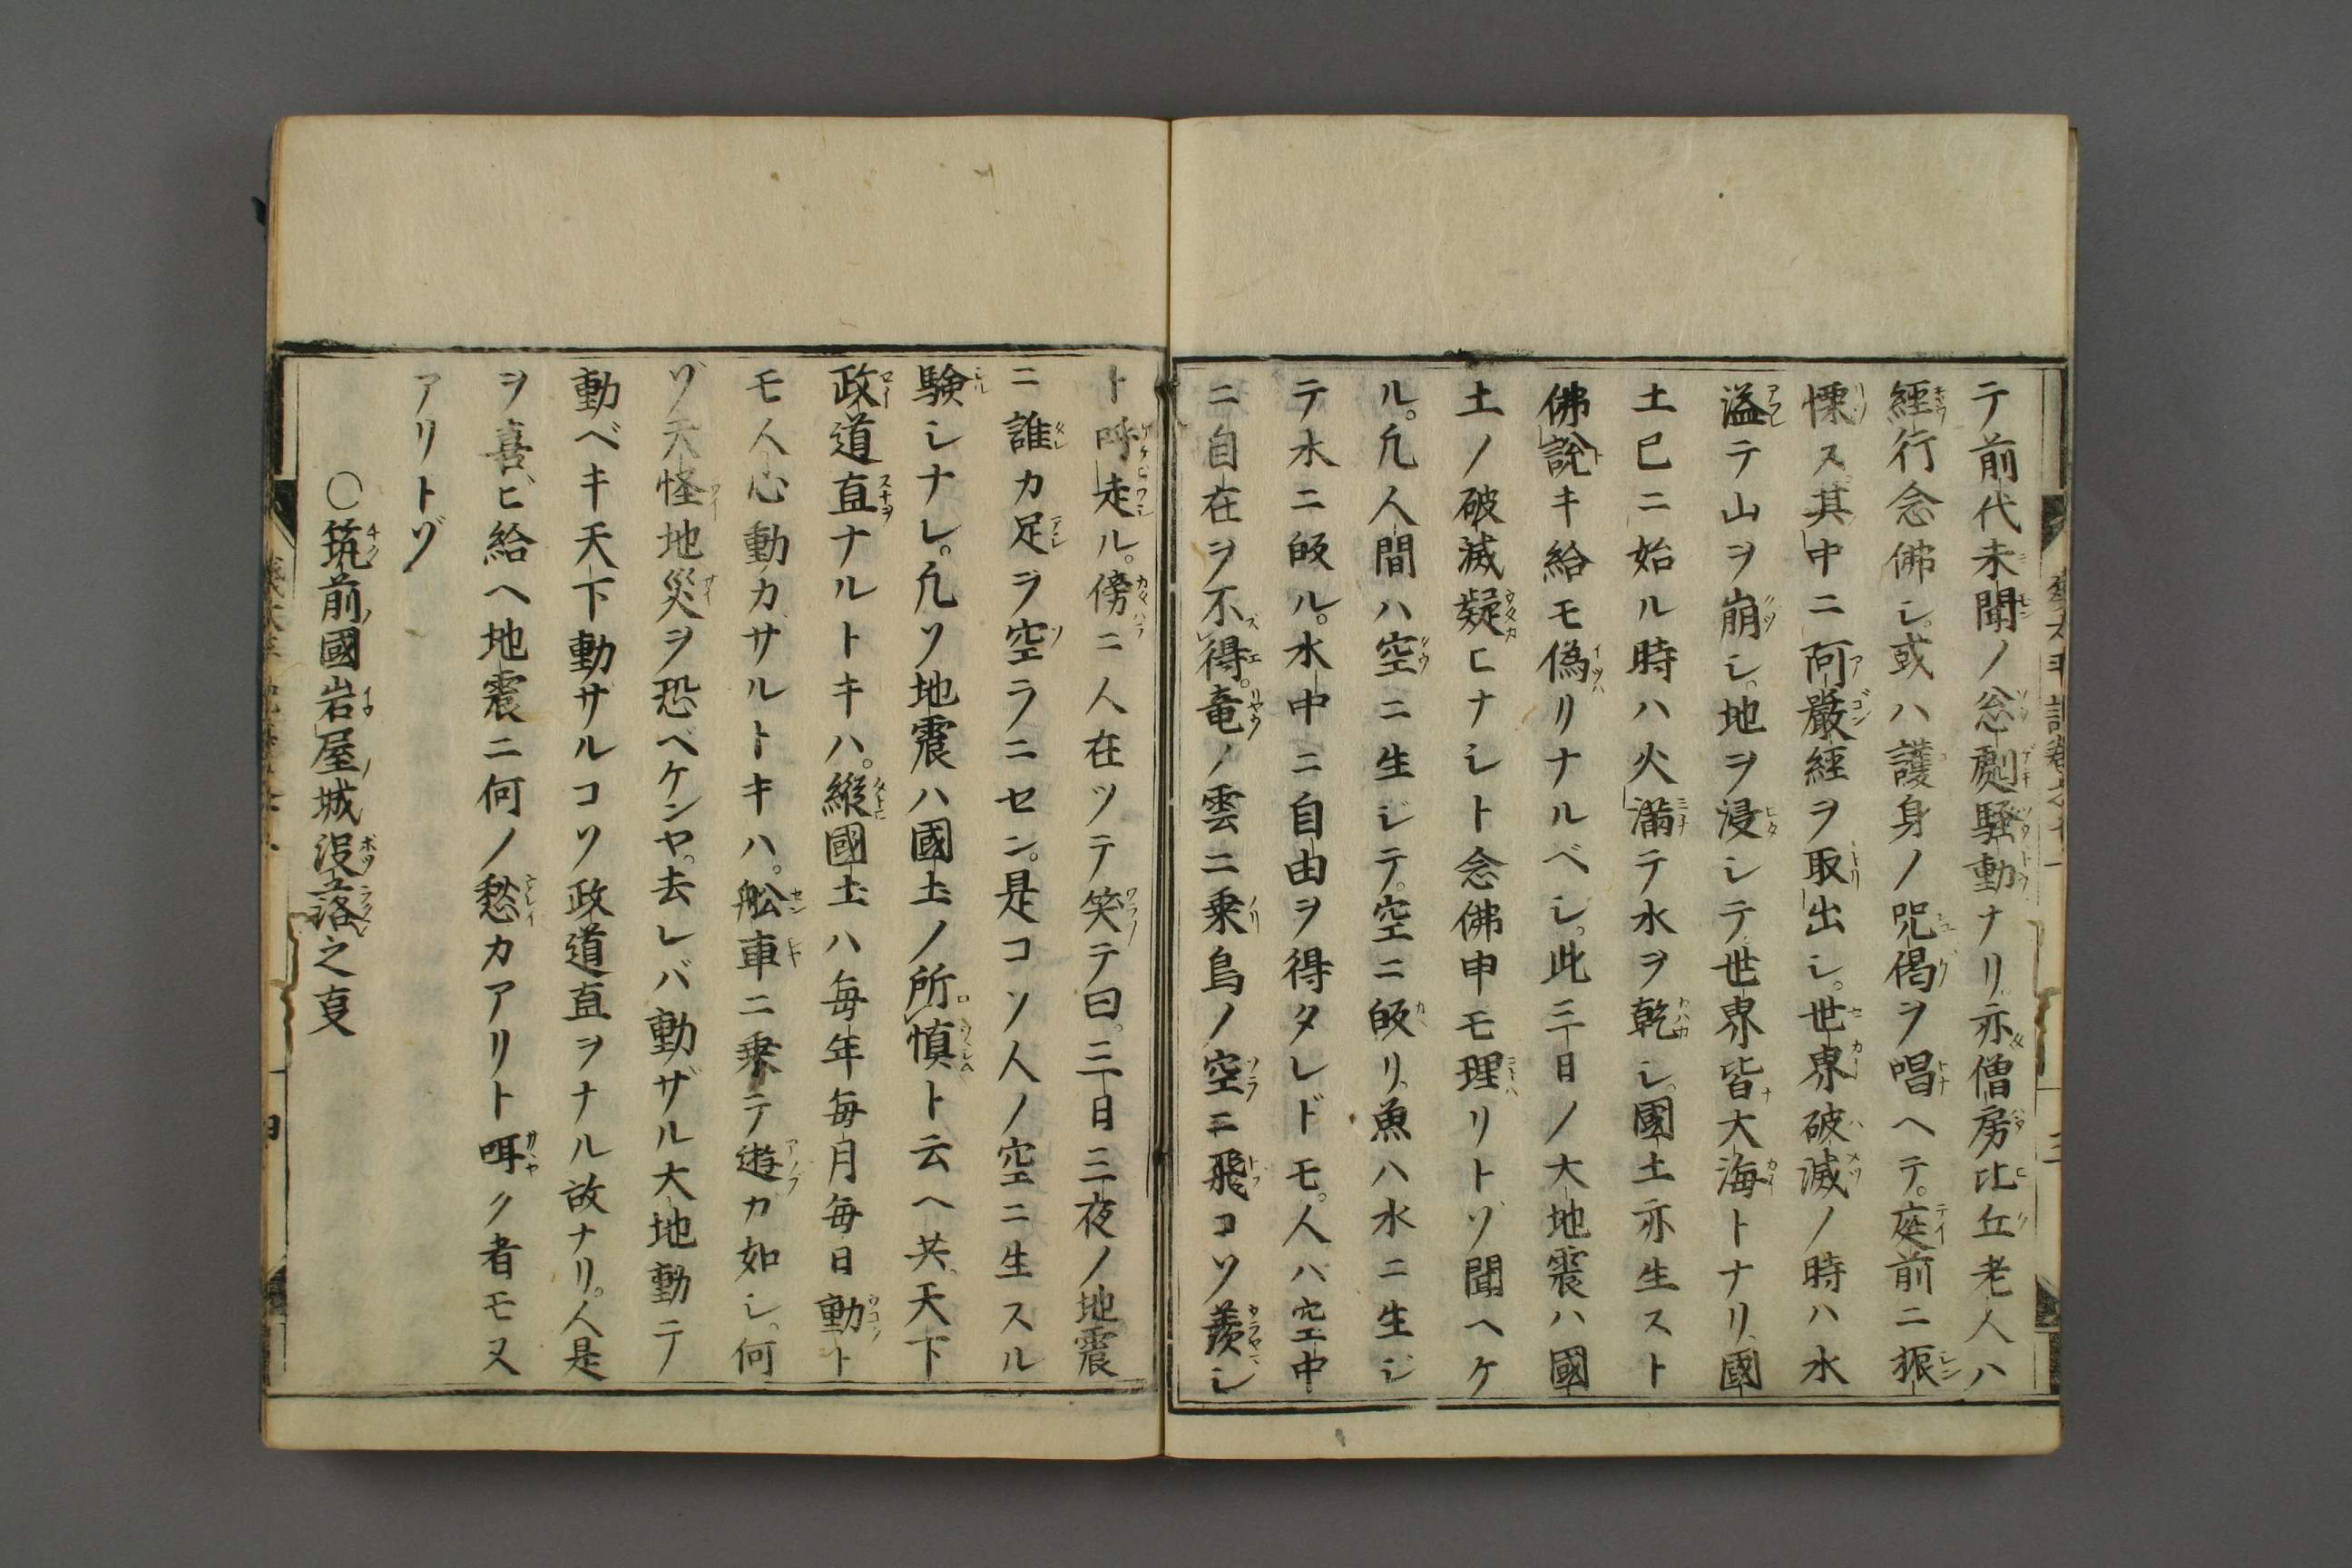 テ前代未聞ノ忩劇騒動ナリ亦僧房比丘老人ハ
經行念佛シ或ハ護身ノ咒偈ヲ唱ヘテ。庭前ニ振
慄ス。其中ニ阿嚴經ヲ取出シ。世界破滅ノ時ハ水
溢テ山ヲ崩シ。地ヲ浸シテ世界皆大海トナリ國
土已ニ始ル時ハ火滿テ水ヲ乾シ。國土亦生スト
佛說キ給モ偽リナルベシ。此三日ノ大地震ハ國
土ノ破滅疑ヒナシト念佛申モ理リトゾ聞ヘケ
ル。凢人間ハ空ニ生ジテ。空ニ皈リ魚ハ水ニ生ジ
テ水ニ皈ル。水中ニ自由ヲ得タレドモ。人ハ空中
ニ自在ヲ不得。竜ノ雲ニ乗鳥ノ空ニ飛コソ羨シ
ト呼走ル。傍ニ人在ツテ笑テ曰。三日三夜ノ地震
ニ誰カ足ヲ空ラニセン。是コソ人ノ空ニ生スル
驗シナレ。凢ソ地震ハ國土ノ所慎ト云ヘ共天下
政道直ナルトキハ。縱國土ハ毎年毎月毎日動ト
モ人心動カサルトキハ。舩車ニ乗テ遊カ如シ。何
ゾ天怪地災ヲ恐ベケンヤ。去レバ動ザル大地動テ
動ベキ天下動ザルコソ政道直ヲナル故ナリ。人是
ヲ喜ヒ給ヘ地震ニ何ノ愁カアリト咡ク者モ又
アリトゾ
〇筑前國岩屋城没落之叓